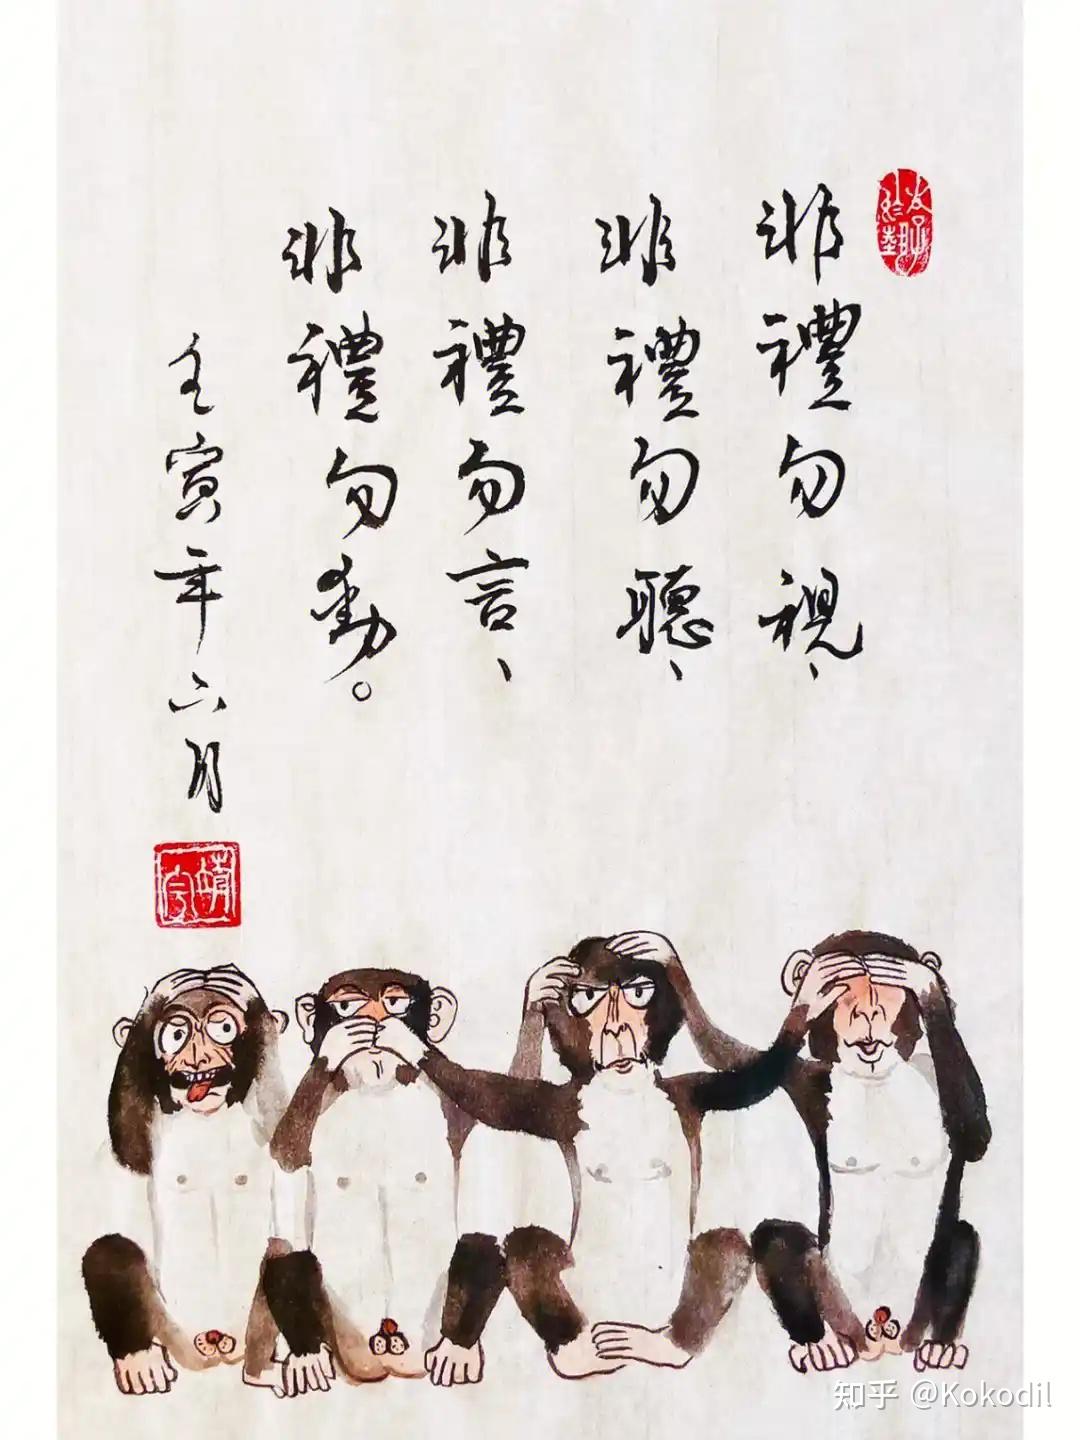 非禮勿視、
非禮勿聽、
非禮勿言、
非禮勿動。
壬寅年六月
知乎 @Kokodil